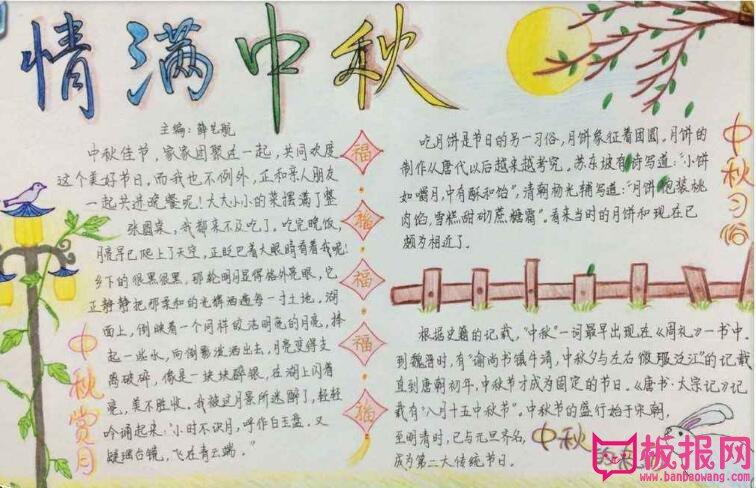 情满中秋
主编：薛艺航
中秋佳节，家家团聚在一起，共同欢度
这个美好节日。而我也不例外，正和哥人朋友
一起共进晚餐呢！大大小小的菜摆满了整
张圆桌，我都来不及吃了。吃完晚饭，
月亮早已爬上了天空，正眨巴着大眼睛看着我呢！
乡下的很黑很黑，那轮明月显得格外亮眼，它
正静静把那柔和的光辉洒遍每一寸土地。湖
面上，倒映着一个同样皎洁明亮的月亮，捧
起一些水，向倒影泼洒出去，月亮变得支
离破碎，像是一块块碎银，在湖上闪着
亮，美不胜收。我被这月景所迷醉了，轻轻
吟诵起来：“小时不识月，呼作白玉盘。又
疑瑶台镜，飞在青云端。”
中秋赏月
福
福
福
福
福
吃月饼是节日的另一习俗，月饼象征着团圆。月饼的
制作从唐代以后越来越考究。苏东坡有诗写道：“小饼
如嚼月，中有酥和饴”，清朝杨光辅写道：“月饼包装桃
肉馅，雪糕甜砌蔗糖霜”。看来当时的月饼和现在已
颇为相近了。
中秋习俗
根据史籍的记载，“中秋”一词最早出现在《周礼》一书中。
到魏晋时，有“谕尚书镇牛渚，中秋夕与左右微服泛江”的记载
直到唐朝初年，中秋节才成为固定的节日。《唐书·太宗记》记
载有“八月十五中秋节”。中秋节的盛行始于宋朝，
至明清时，已与元旦齐名，
成为第二大传统节日。
中秋
板报网
www.banbaowang.com